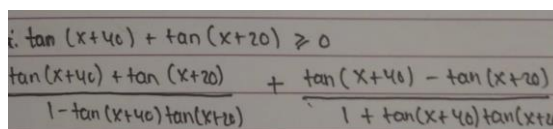 i. tan (x+40) + tan (x+20) ⩾ 0
tan(x+40) + tan (x+20) + tan(x+40) - tan(x+20)
1 - tan(x+40) tan(x+20) 1 + tan(x+40) tan(x+2